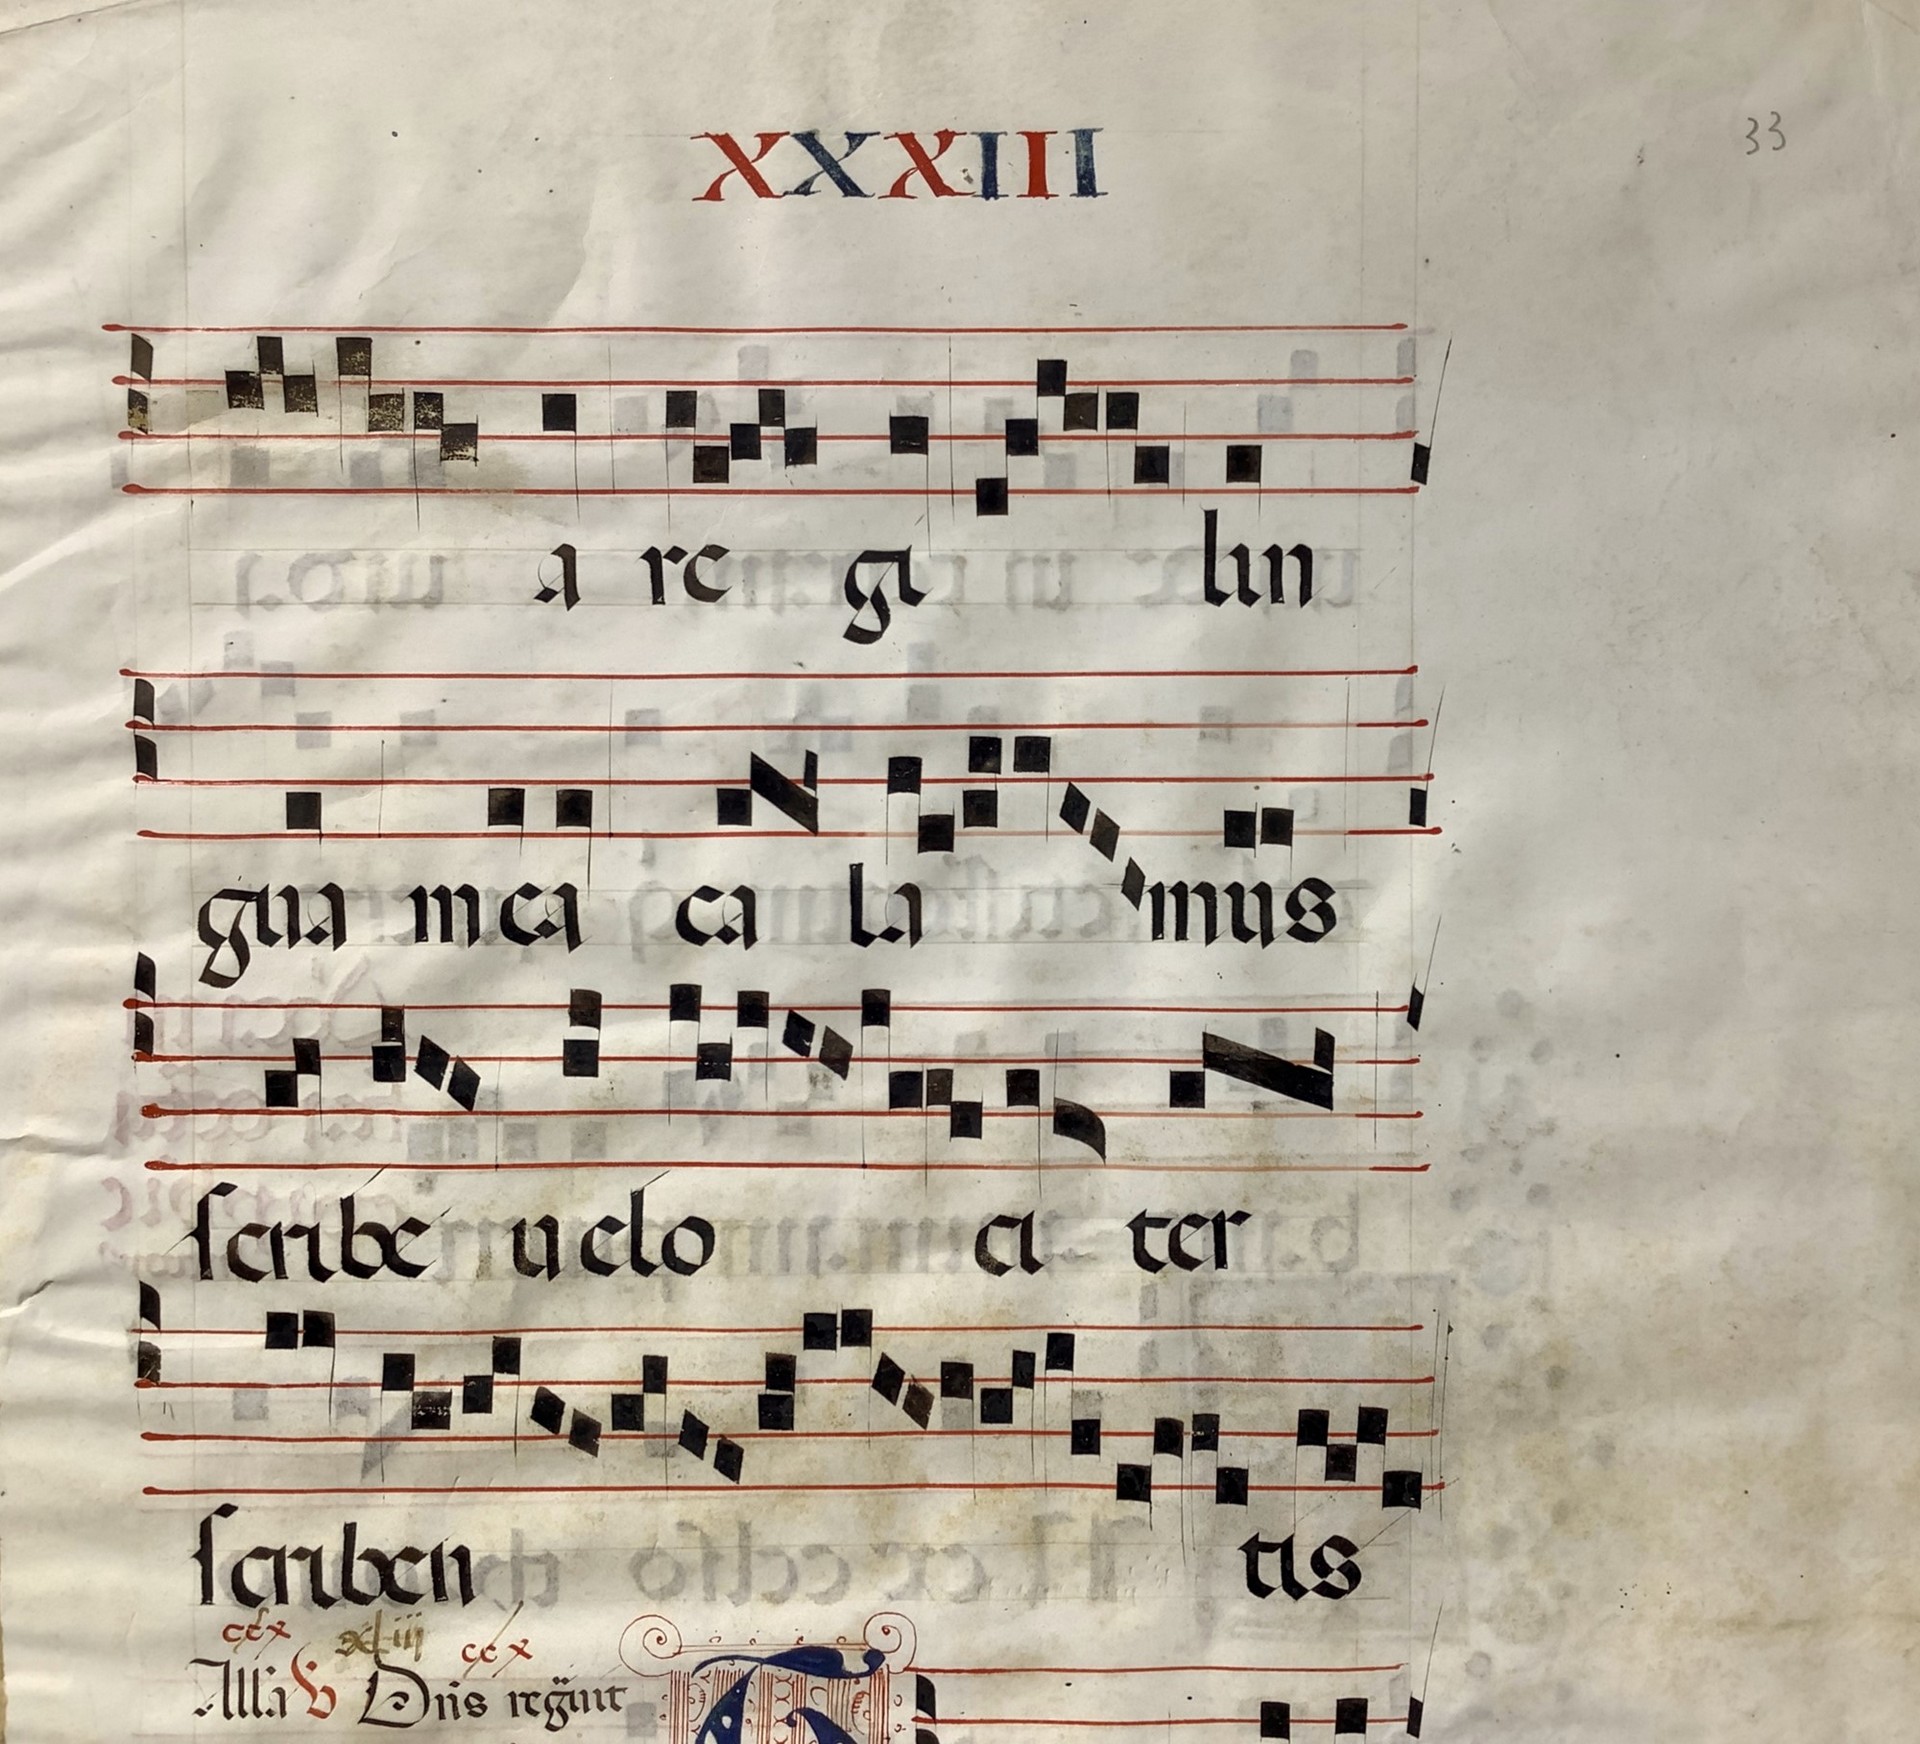 XXXIII
33
a re gi lin
gua mea ca la mus
scribe uelo ci ter
scriben tis
ccx xliii ccx
Alla V Dns regnuit